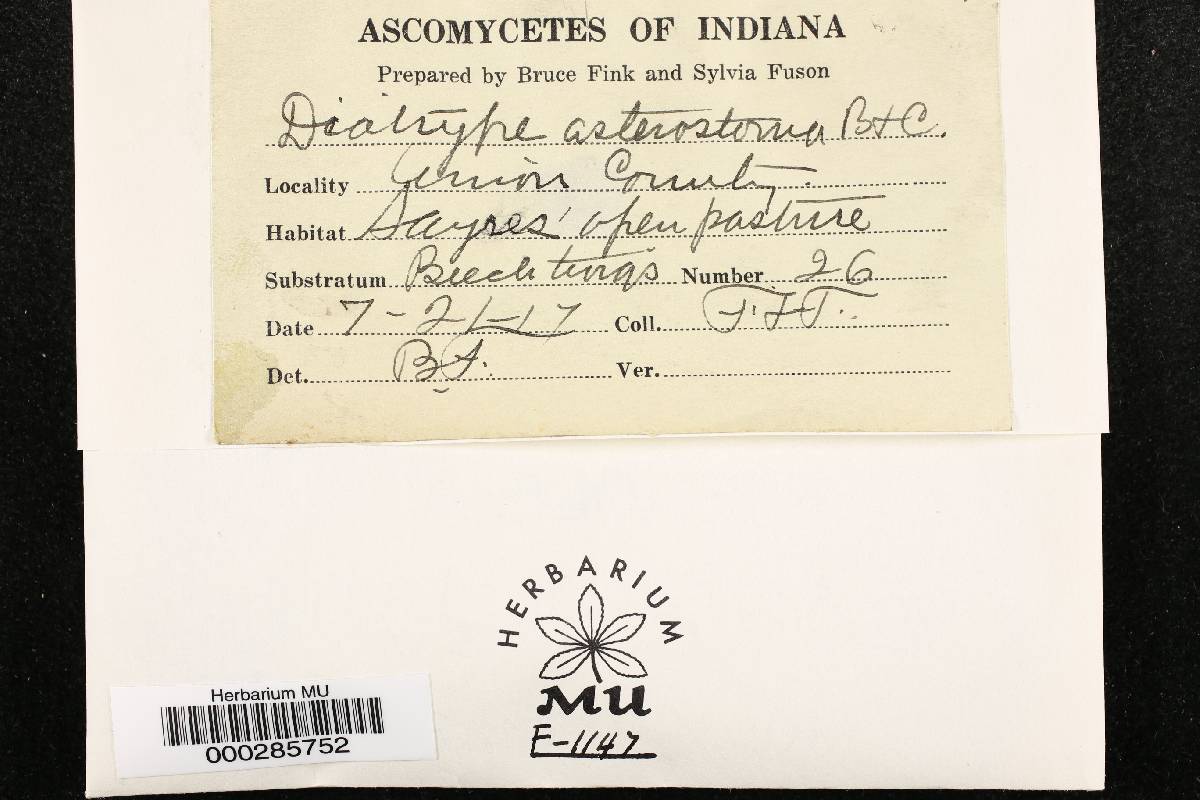 ASCOMYCETES OF INDIANA
Prepared by Bruce Fink and Sylvia Fuson
Diatrype asterostoma B+C.
Locality Union County.
Habitat Sayres' open pasture
Substratum Beech twigs Number 26
Date 7-21-17 Coll.
Det. B.F. Ver.
HERBARIUM
MU
F-1147
Herbarium MU
000285752